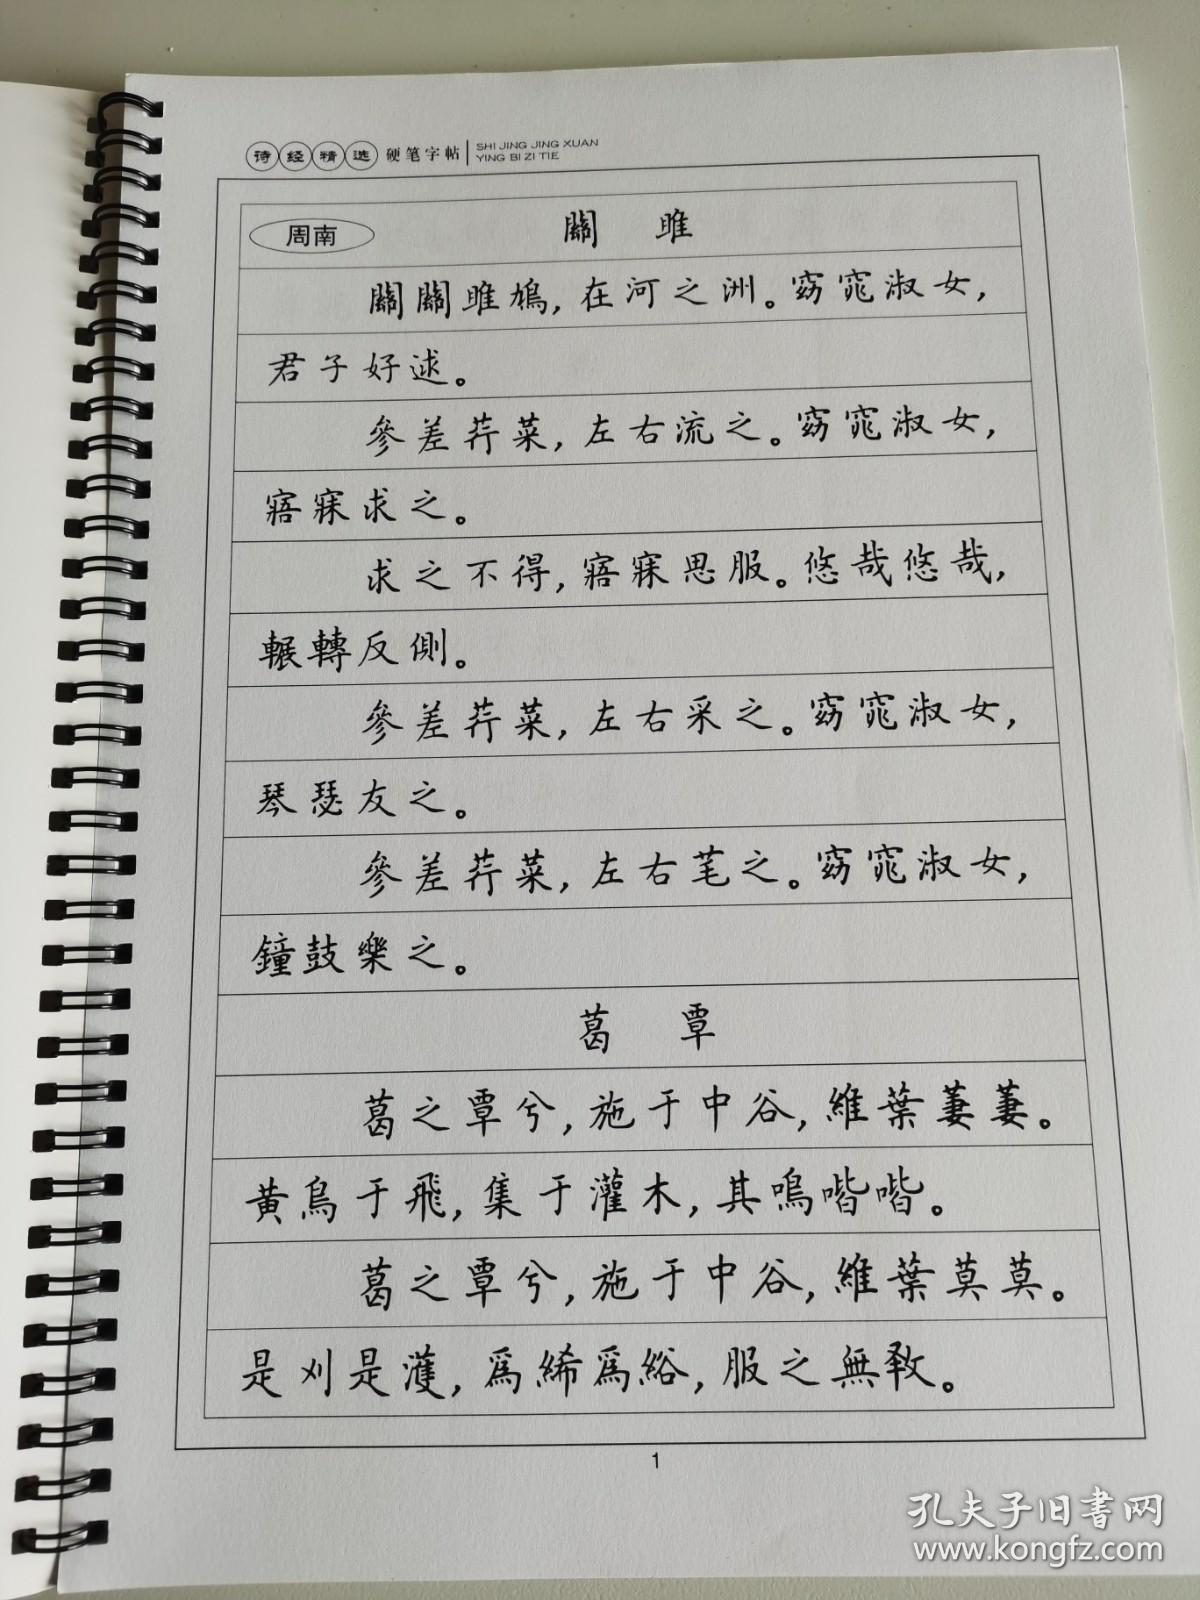 诗经精选 硬笔字帖 SHI JING JING XUAN
YING BI ZI TIE
周南 關 雎
關關雎鳩，在河之洲。窈窕淑女，
君子好逑。
參差荇菜，左右流之。窈窕淑女，
寤寐求之。
求之不得，寤寐思服。悠哉悠哉，
輾轉反側。
參差荇菜，左右采之。窈窕淑女，
琴瑟友之。
參差荇菜，左右芼之。窈窕淑女，
鐘鼓樂之。
葛 覃
葛之覃兮，施于中谷，維葉萋萋。
黄鳥于飛，集于灌木，其鳴喈喈。
葛之覃兮，施于中谷，維葉莫莫。
是刈是濩，爲絺爲綌，服之無斁。
1
孔夫子旧書网
www.kongfz.com